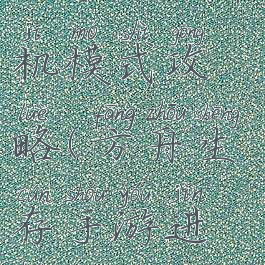 jī mó shì gōng
机模式攻
lüè fāng zhōu shēng
略(方舟生
cún shǒu yóu jìn
存手游进